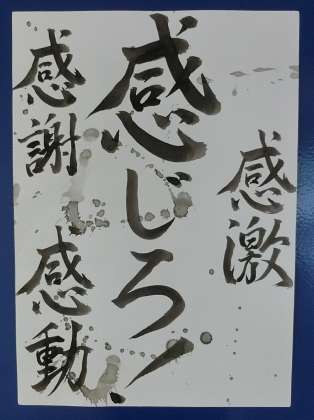 感激
感じろ!
感謝
感動